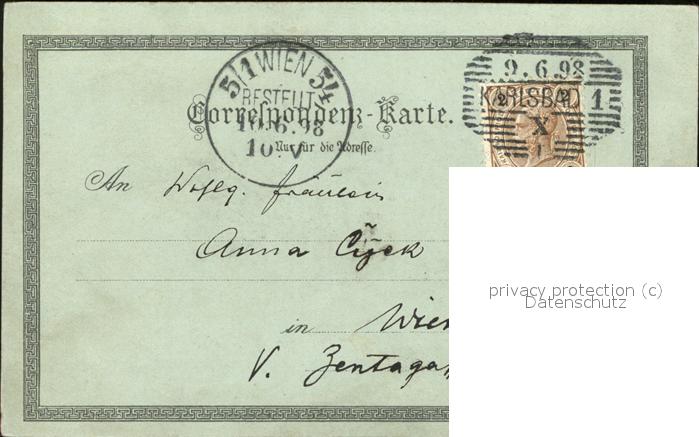 9. 6. 98
5/1 WIEN 54
KARLSBAD 1
BESTELLT
Correspondenz-Karte.
10. 6. 98
X
10. V
1
Nur für die Adresse.
An Wohlg. Fräulein
Anna
in Wien
V. Zentaga
privacy protection (c)
Datenschutz